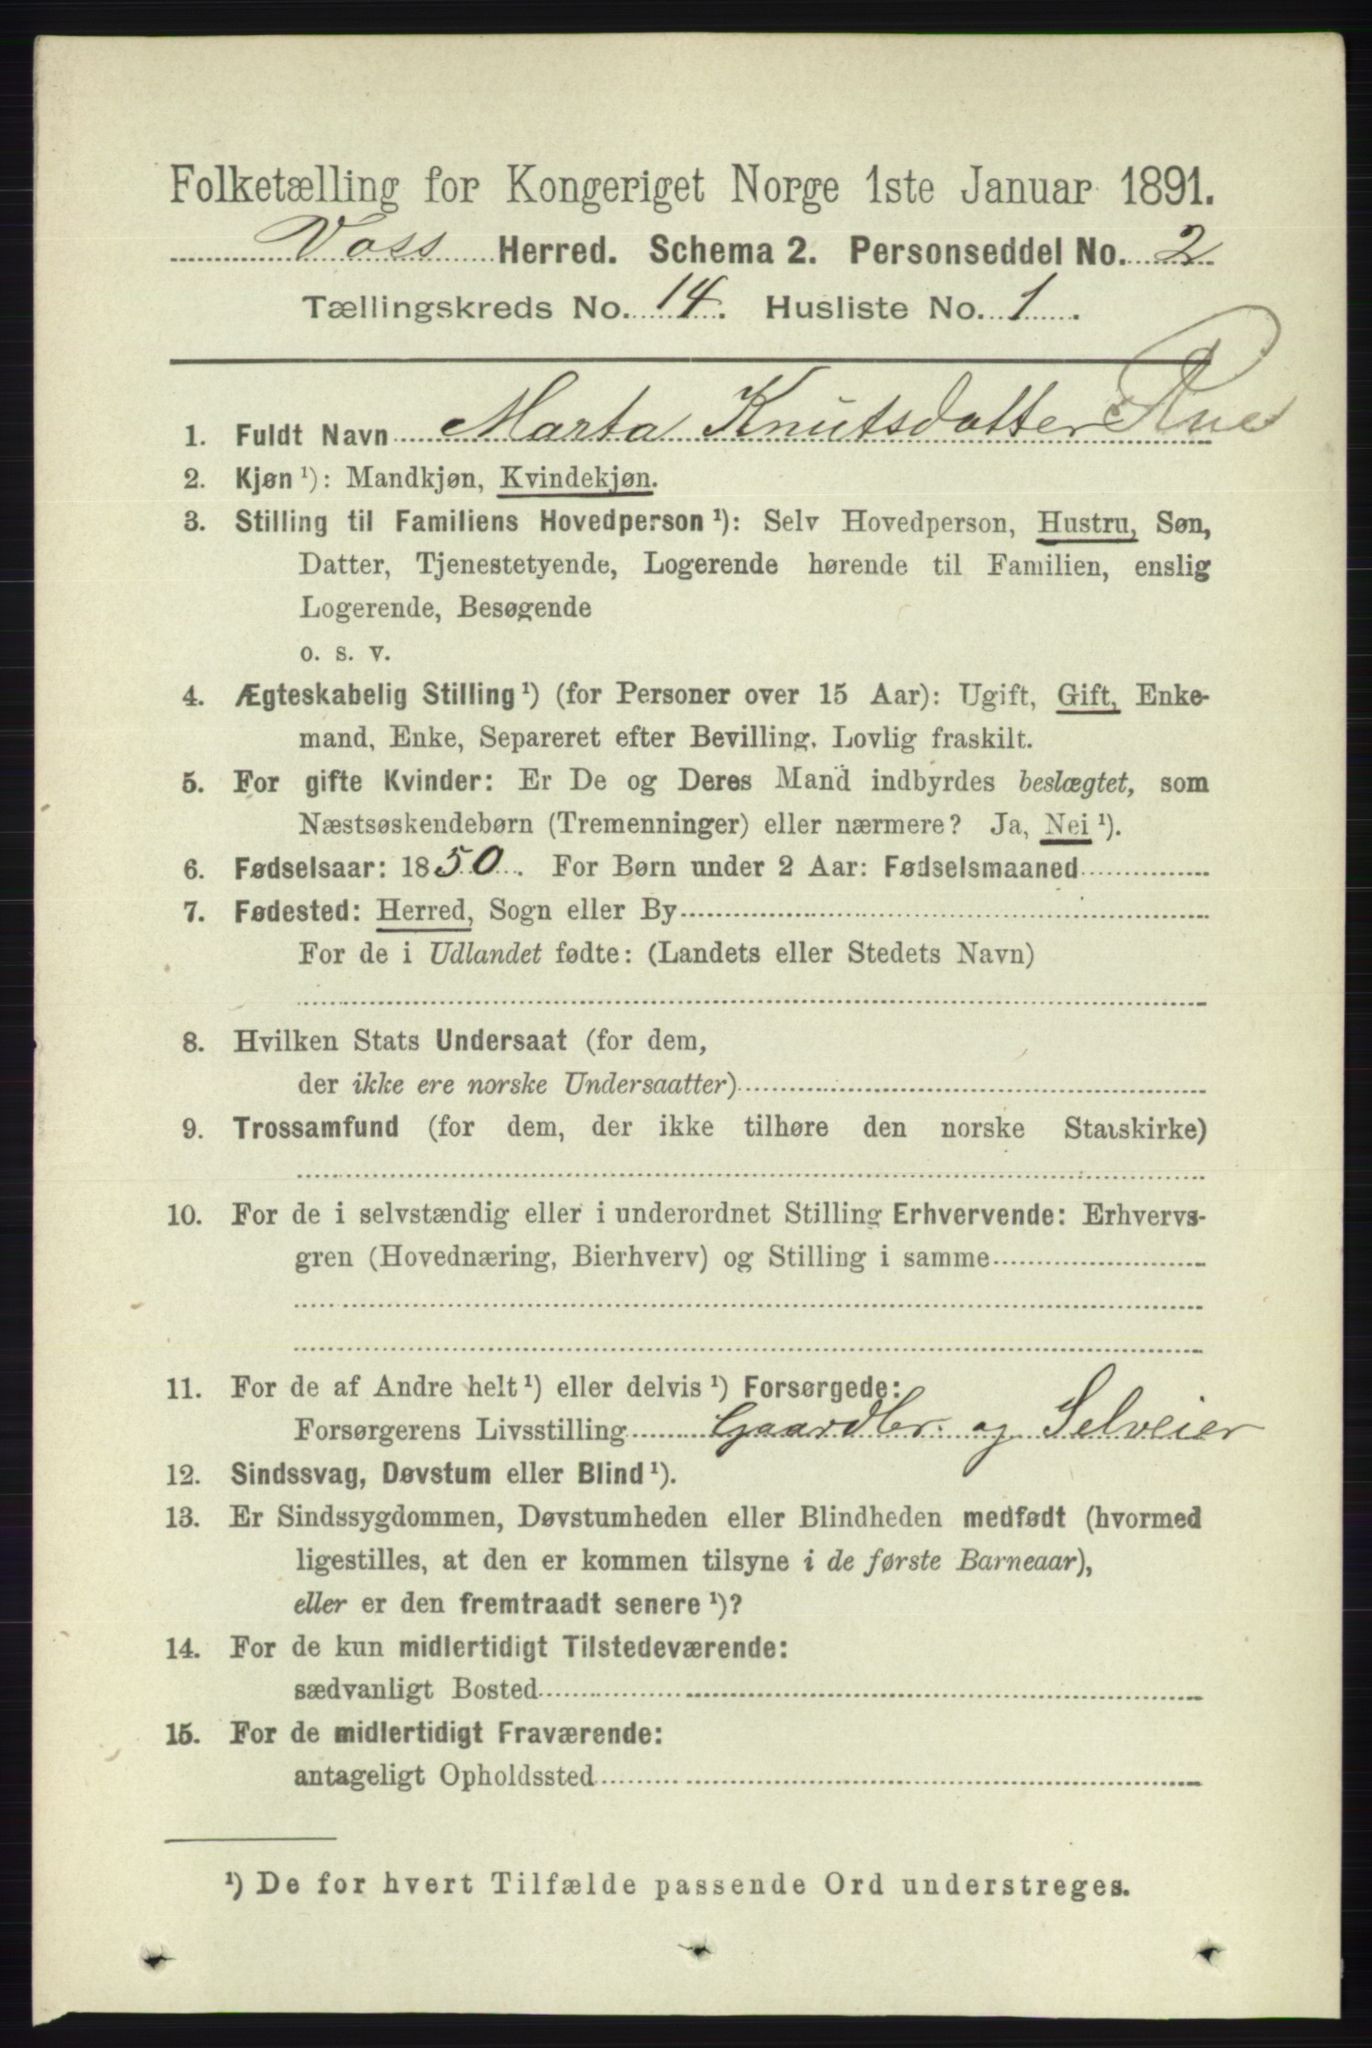 Folketælling for Kongeriget Norge 1ste Januar 1891.
Voss Herred. Schema 2. Personseddel No. 2
Tællingskreds No. 14. Husliste No. 1.
1. Fuldt Navn Marta Knutsdatter Rue
2. Kjøn ¹): Mandkjøn, Kvindekjøn.
3. Stilling til Familiens Hovedperson ¹): Selv Hovedperson, Hustru, Søn,
Datter, Tjenestetyende, Logerende hørende til Familien, enslig
Logerende, Besøgende
o. s. v.
4. Ægteskabelig Stilling ¹) (for Personer over 15 Aar): Ugift, Gift, Enke-
mand, Enke, Separeret efter Bevilling. Lovlig fraskilt.
5. For gifte Kvinder: Er De og Deres Mand indbyrdes beslægtet, som
Næstsøskendebørn (Tremenninger) eller nærmere? Ja, Nei ¹).
6. Fødselsaar: 1850. For Børn under 2 Aar: Fødselsmaaned
7. Fødested: Herred, Sogn eller By
For de i Udlandet fødte: (Landets eller Stedets Navn)
8. Hvilken Stats Undersaat (for dem,
der ikke ere norske Undersaatter)
9. Trossamfund (for dem, der ikke tilhøre den norske Statskirke)
10. For de i selvstændig eller i underordnet Stilling Erhvervende: Erhvervs-
gren (Hovednæring, Bierhverv) og Stilling i samme
11. For de af Andre helt ¹) eller delvis ¹) Forsørgede:
Forsørgerens Livsstilling Gaardbr. og Selveier
12. Sindssvag, Døvstum eller Blind ¹).
13. Er Sindssygdommen, Døvstumheden eller Blindheden medfødt (hvormed
ligestilles, at den er kommen tilsyne i de første Barneaar),
eller er den fremtraadt senere ¹)?
14. For de kun midlertidigt Tilstedeværende:
sædvanligt Bosted
15. For de midlertidigt Fraværende:
antageligt Opholdssted
¹) De for hvert Tilfælde passende Ord understreges.